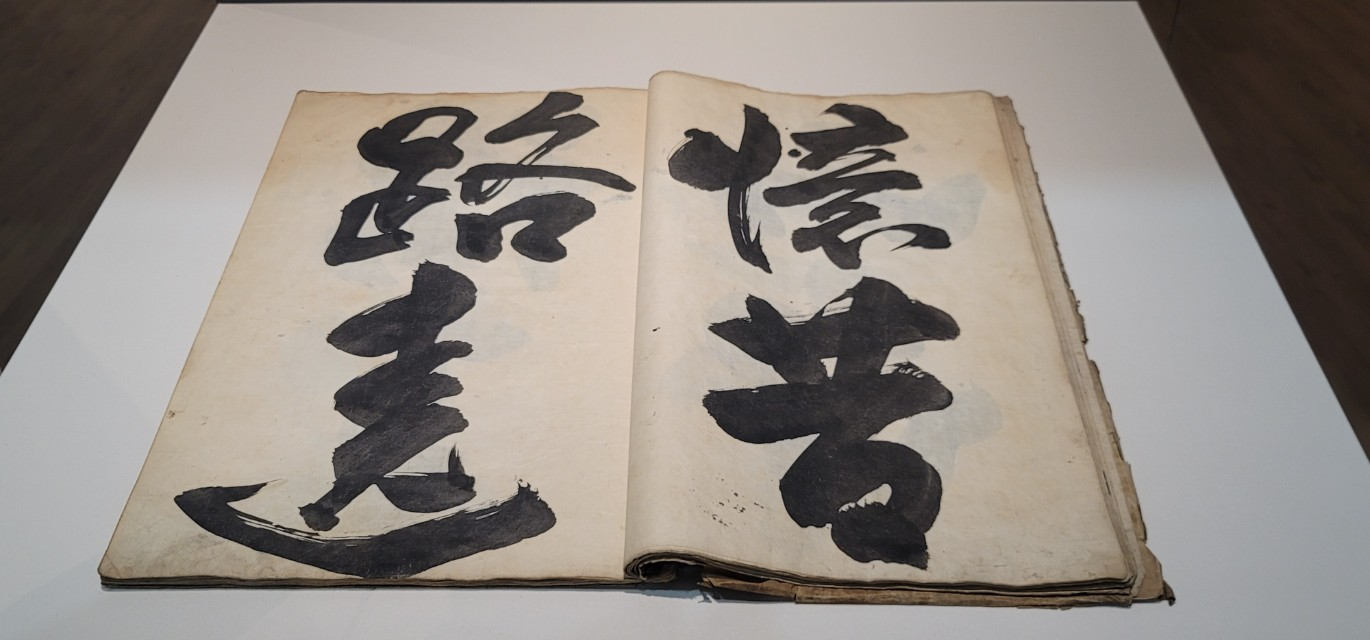 憶昔
路遠